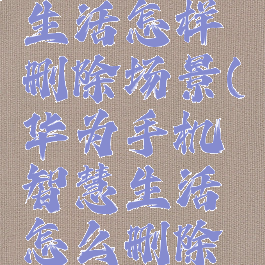 生活怎样
删除场景(
华为手机
智慧生活
怎么删除